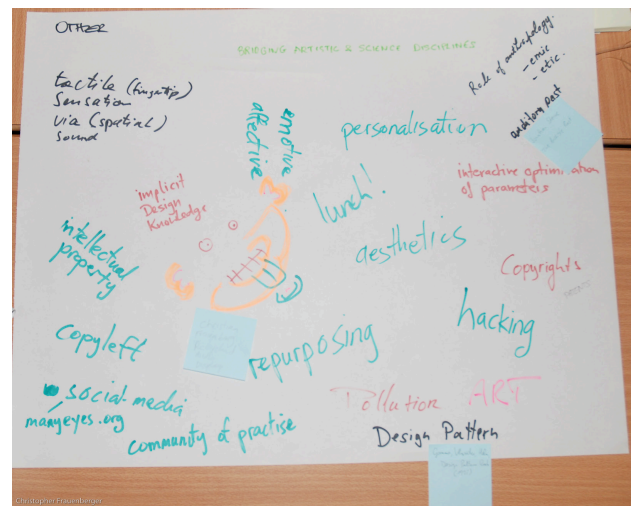 OTHER
BRIDGING ARTISTIC & SCIENCE DISCIPLINES
Role of anthropology.
- emic
- etic.
tactile (fingertip)
Sensation
via (spatial)
sound
affective
emotive
personalisation
auditory past
interactive optimisation
of parameters
implicit
Design
Knowledge
lunch!
intellectual
property
aesthetics
Copyrights
hacking
copyleft
repurposing
social media
manyeyes.org
community of practise
Pollution
ART
Design Pattern
Christopher Frauenberger